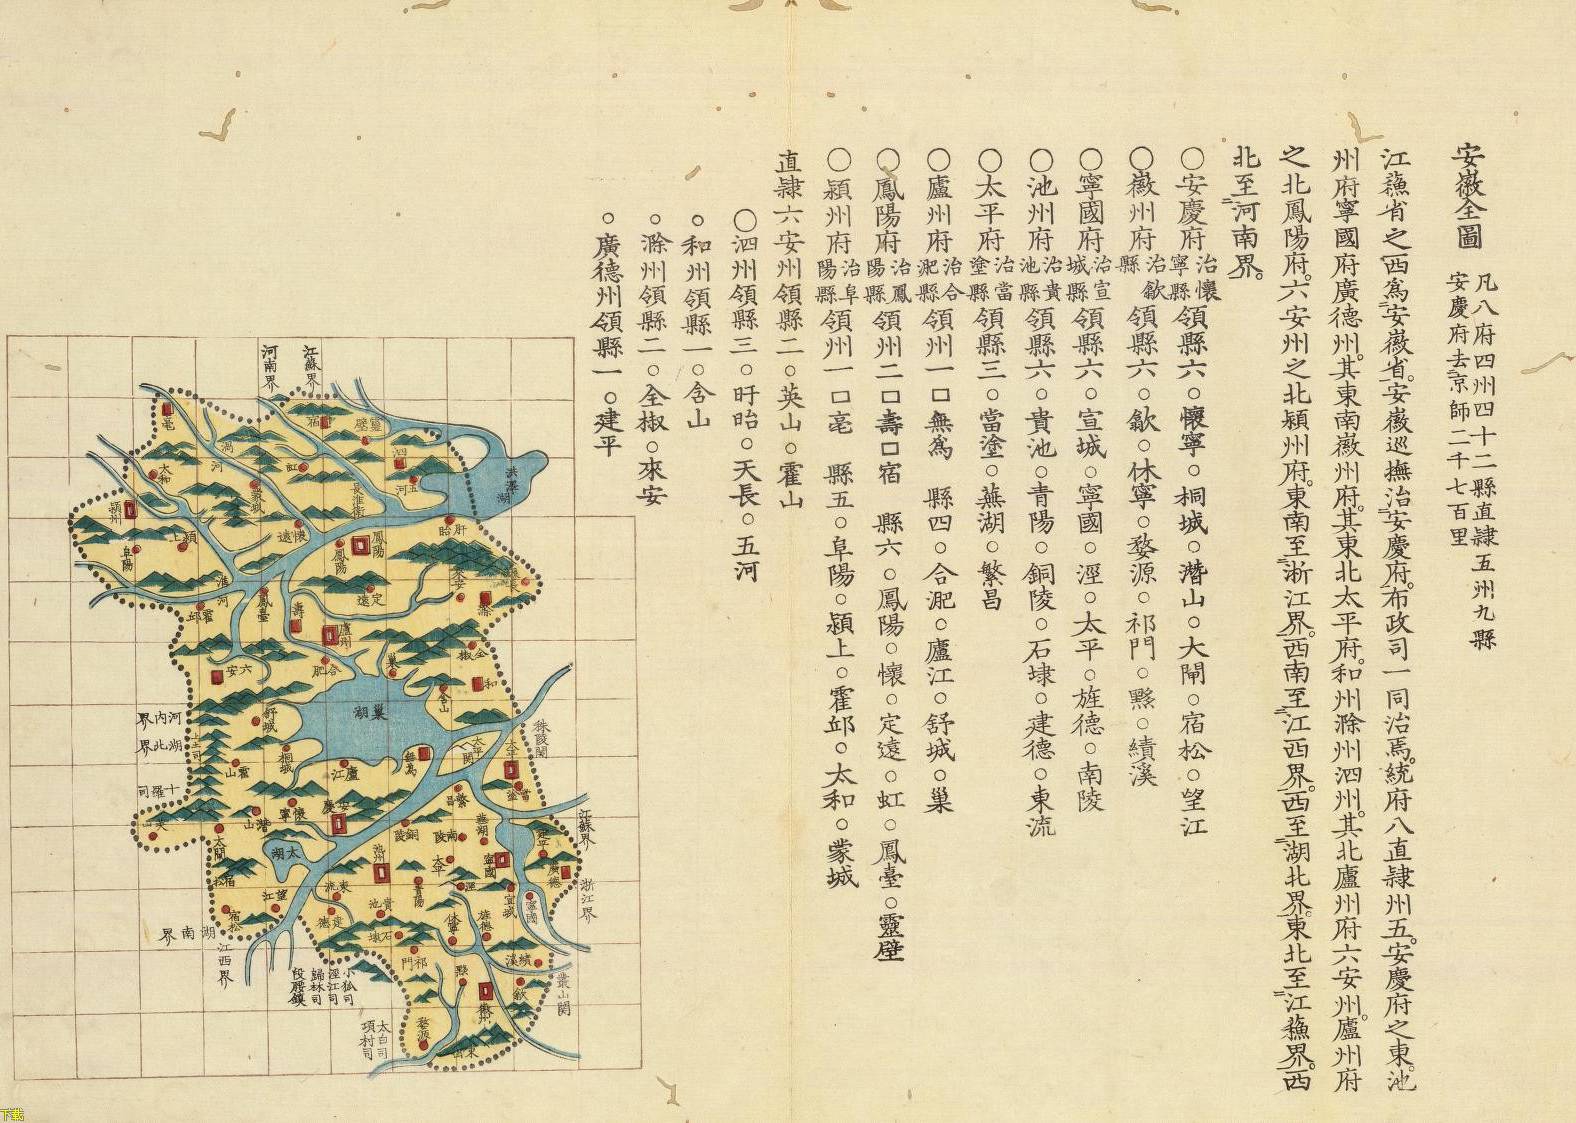 安徽全圖
凡八府四州四十二縣直隸五州九縣
安慶府去京師二千七百里
江蘓省之西爲安徽省。安徽巡撫治安慶府。布政司一同治焉。統府八直隸州五。安慶府之東池
州府寧國府廣德州。其東南徽州府。其東北太平府。和州滁州泗州。其北廬州府六安州。廬州府
之北鳳陽府。六安州之北潁州府。東南至浙江界。西南至江西界。西至湖北界。東北至江蘓界。西
北至河南界。
〇安慶府治懷寧縣領縣六。懷寧。桐城。潛山。太閒。宿松。望江
〇徽州府治歙縣領縣六。歙。休寧。婺源。祁門。黟。績溪
〇寧國府治宣城縣領縣六。宣城。寧國。涇。太平。旌德。南陵
〇池州府治貴池縣領縣六。貴池。青陽。銅陵。石埭。建德。東流
〇太平府治當塗縣領縣三。當塗。蕪湖。繁昌
〇廬州府治合淝縣領州一口無爲 縣四。合淝。廬江。舒城。巢
〇鳳陽府治鳳陽縣領州二口壽口宿 縣六。鳳陽。懷。定遠。虹。鳳臺。靈壁
〇潁州府治阜陽縣領州一口亳 縣五。阜陽。潁上。霍邱。太和。蒙城
直隸六安州領縣二。英山。霍山
〇泗州領縣三。盱眙。天長。五河
。和州領縣一。含山
。滁州領縣二。全椒。來安
。廣德州領縣一。建平
江蘇界
河南界
亳
宿
靈壁
渦河
泗
太和
虹
五河
蒙城
長淮衛
洪澤湖
潁州
懷遠
盱眙
潁上
阜陽
鳳陽
鳳陽
來安
淮河
定遠
滁
霍邱
鳳臺
壽
廬州
全椒
六安
合肥
巢
和
含山
河内界
湖北界
舒城
巢湖
秣陵関
上土司
桐城
太平関
太平
霍山
廬江
無爲
十羅司
當塗
繁昌
英山
潛山
懷寧
安慶
江蘇界
銅陵
南陵
蕪湖
建平
太閒
太湖
池州
太平
寧國
廣德
宿松
青陽
涇
宣城
浙江界
望江
東流
貴池
寧國
宿松
建德
石埭
休寧
旌德
湖南界
江西界
祁門
績溪
黟
叢山関
小孤司
涇江司
歸林司
段腰鎮
歙
徽州
婺源
太白司
項村司
下载